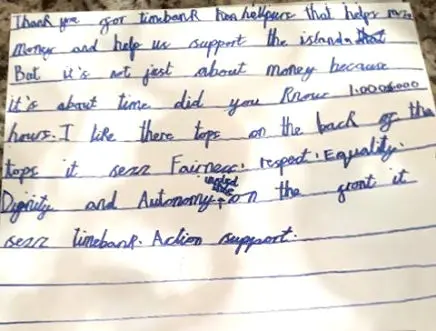 Thank you for timebank has hellpers that helps raze
money and help us support the islanda that
But it's not just about money because
it's about time did you know 1.000.000
hours. I like there tops on the back of the
tops it sezz Fairness. respect. Equality.
Dignity and Autonomy. on the front it
sezz timebank. Action support.